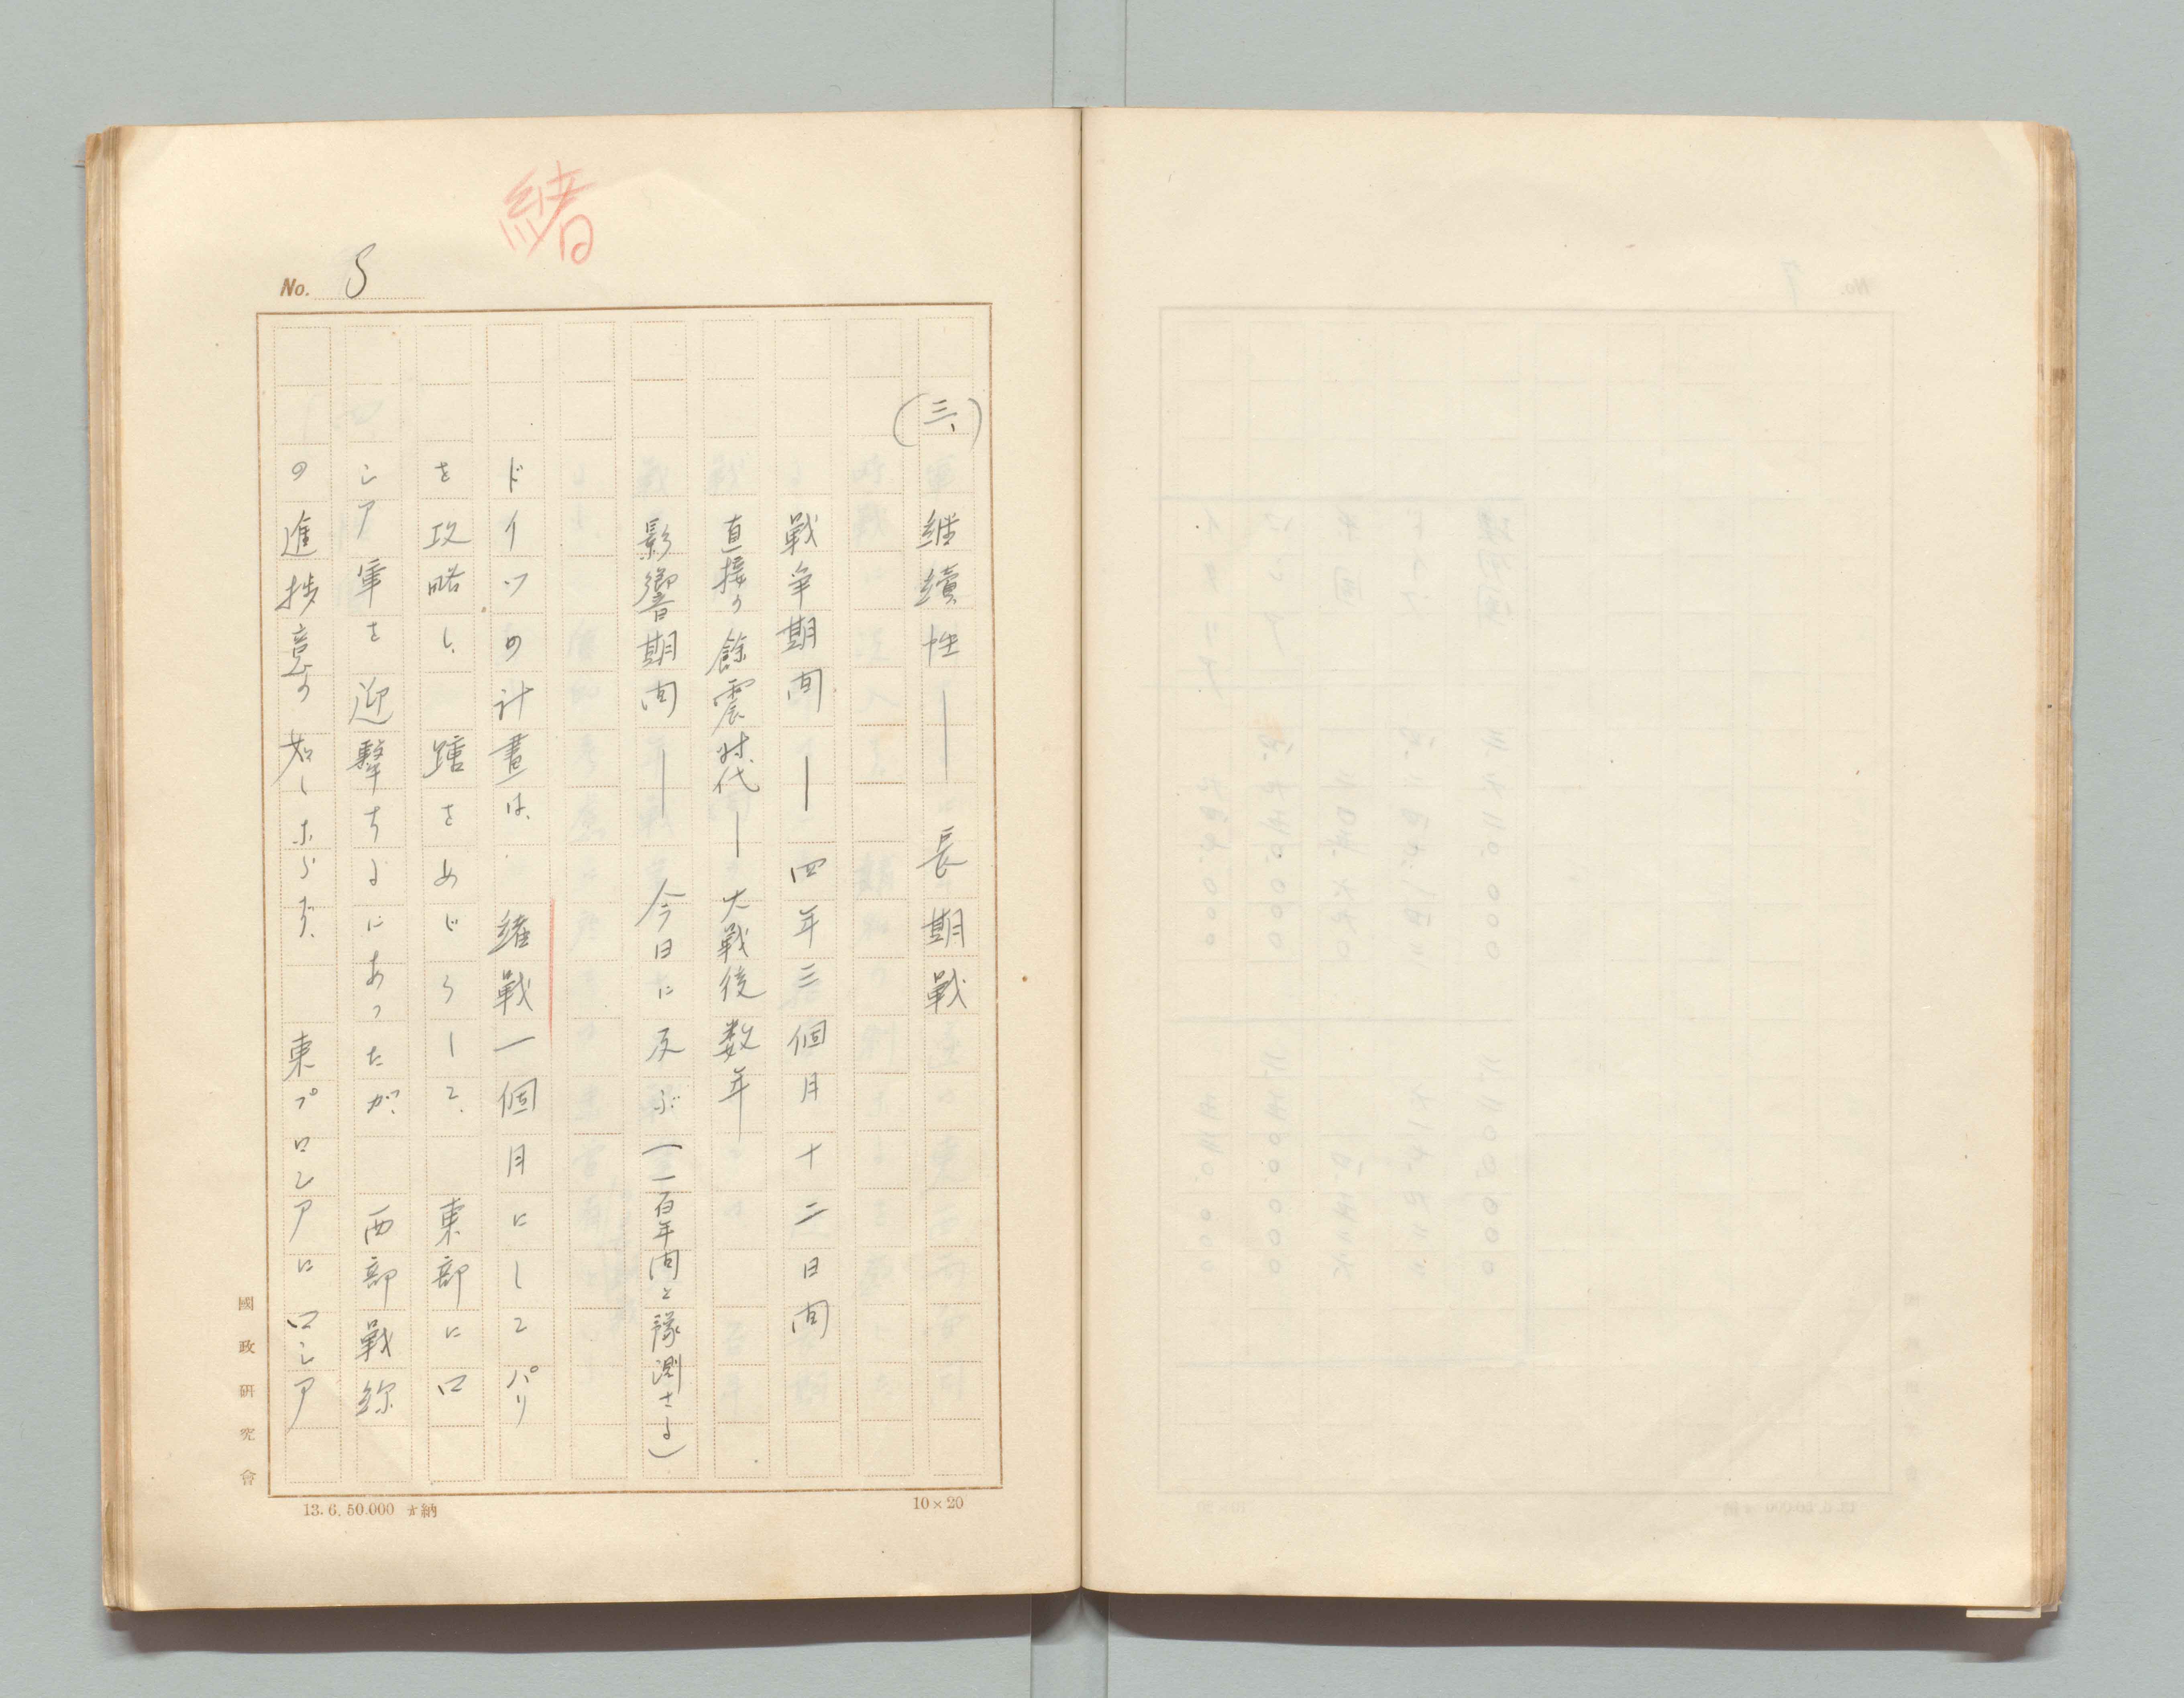 緒
No. 5
(三、) 継續性——長期戰
戰争期間——四年三個月十二日間
直接の餘震时代—大戰後数年
影響期間——今日に及ぶ(一百年間と豫測さる)
ドイツの計畫は、緒戰一個月にしてパリ
を攻略し、踵をめじらして、東部にロ
シア軍を迎撃ちるにあったが、西部戰線
の進捗意の如しならず、東プロシアにロシア
國政研究會
13.6.50.000 ヰ納
10×20